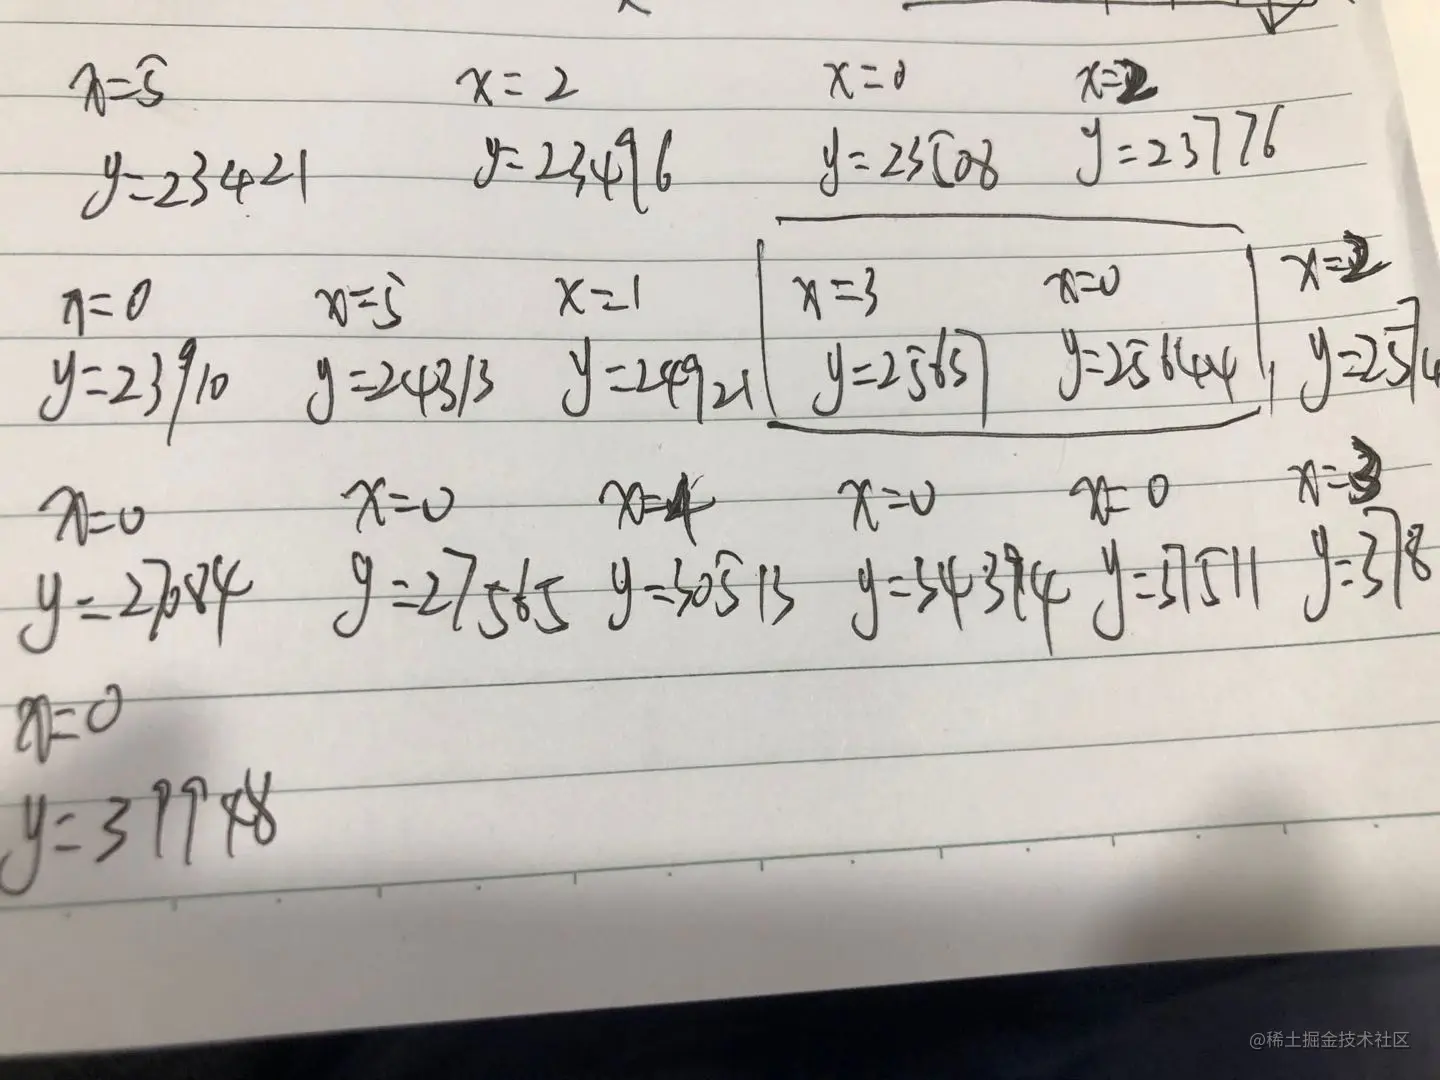 x=5 x=2 x=0 x=2
y=23421 y=23496 y=23508 y=23776
x=0 x=5 x=1 x=3 x=0 x=2
y=23910 y=24313 y=24921 y=25657 y=25644
x=0 x=0 x=4 x=0 x=0 x=3
y=27084 y=27565 y=30513 y=34394 y=37511 y=378
x=0
y=39948
@稀土掘金技术社区